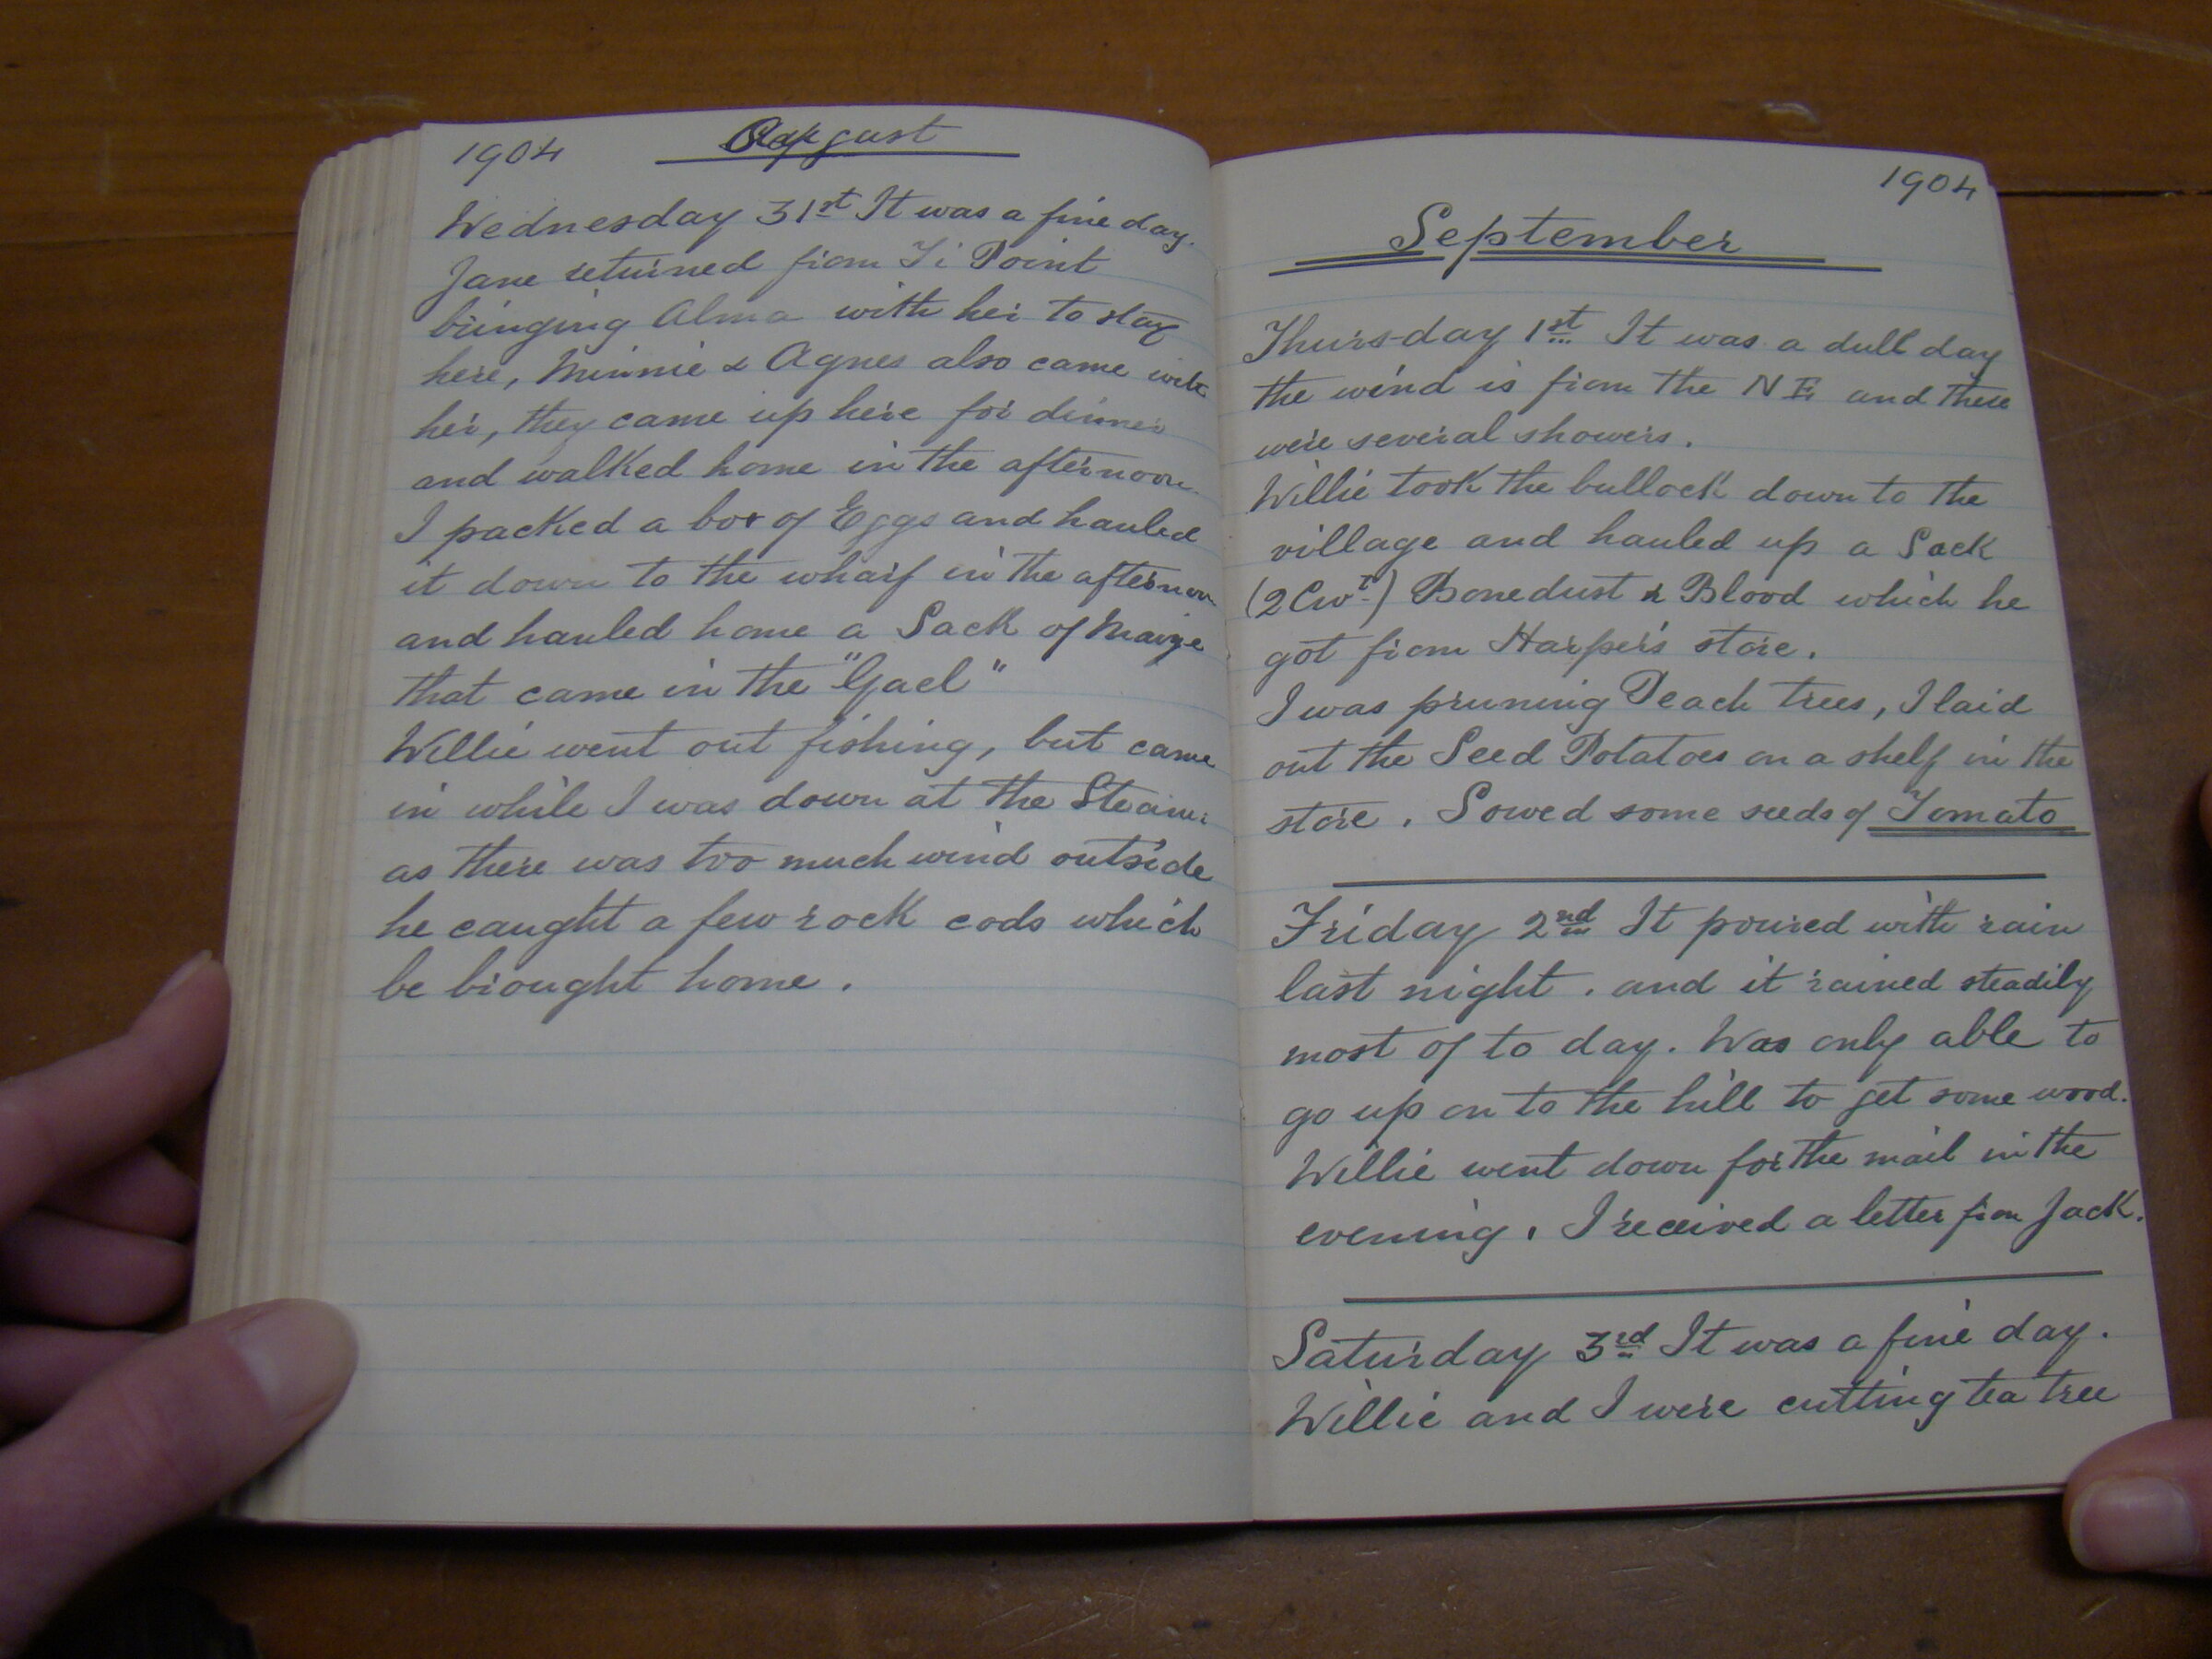 1904 August
Wednesday 31st It was a fine day.
Jane returned from Ti Point
bringing Alma with her to stay
here, Minnie & Agnes also came with
her, they came up here for dinner
and walked home in the afternoon.
I packed a box of Eggs and hauled
it down to the wharf in the afternoon
and hauled home a Sack of Maize
that came in the "Gael"
Willie went out fishing, but came
in while I was down at the Steamr
as there was too much wind outside
he caught a few rock cods which
be brought home.
1904
September
Thursday 1st It was a dull day
the wind is from the N E and there
were several showers.
Willie took the bullock down to the
village and hauled up a Sack
(2 Cwt.) Bonedust & Blood which he
got from Harper's store.
I was pruning Peach trees, I laid
out the Seed Potatoes on a shelf in the
store. Sowed some seeds of Tomato
Friday 2nd It poured with rain
last night. and it rained steadily
most of to day. Was only able to
go up on to the hill to get some wood.
Willie went down for the mail in the
evening. I received a letter from Jack.
Saturday 3rd It was a fine day.
Willie and I were cutting tea tree